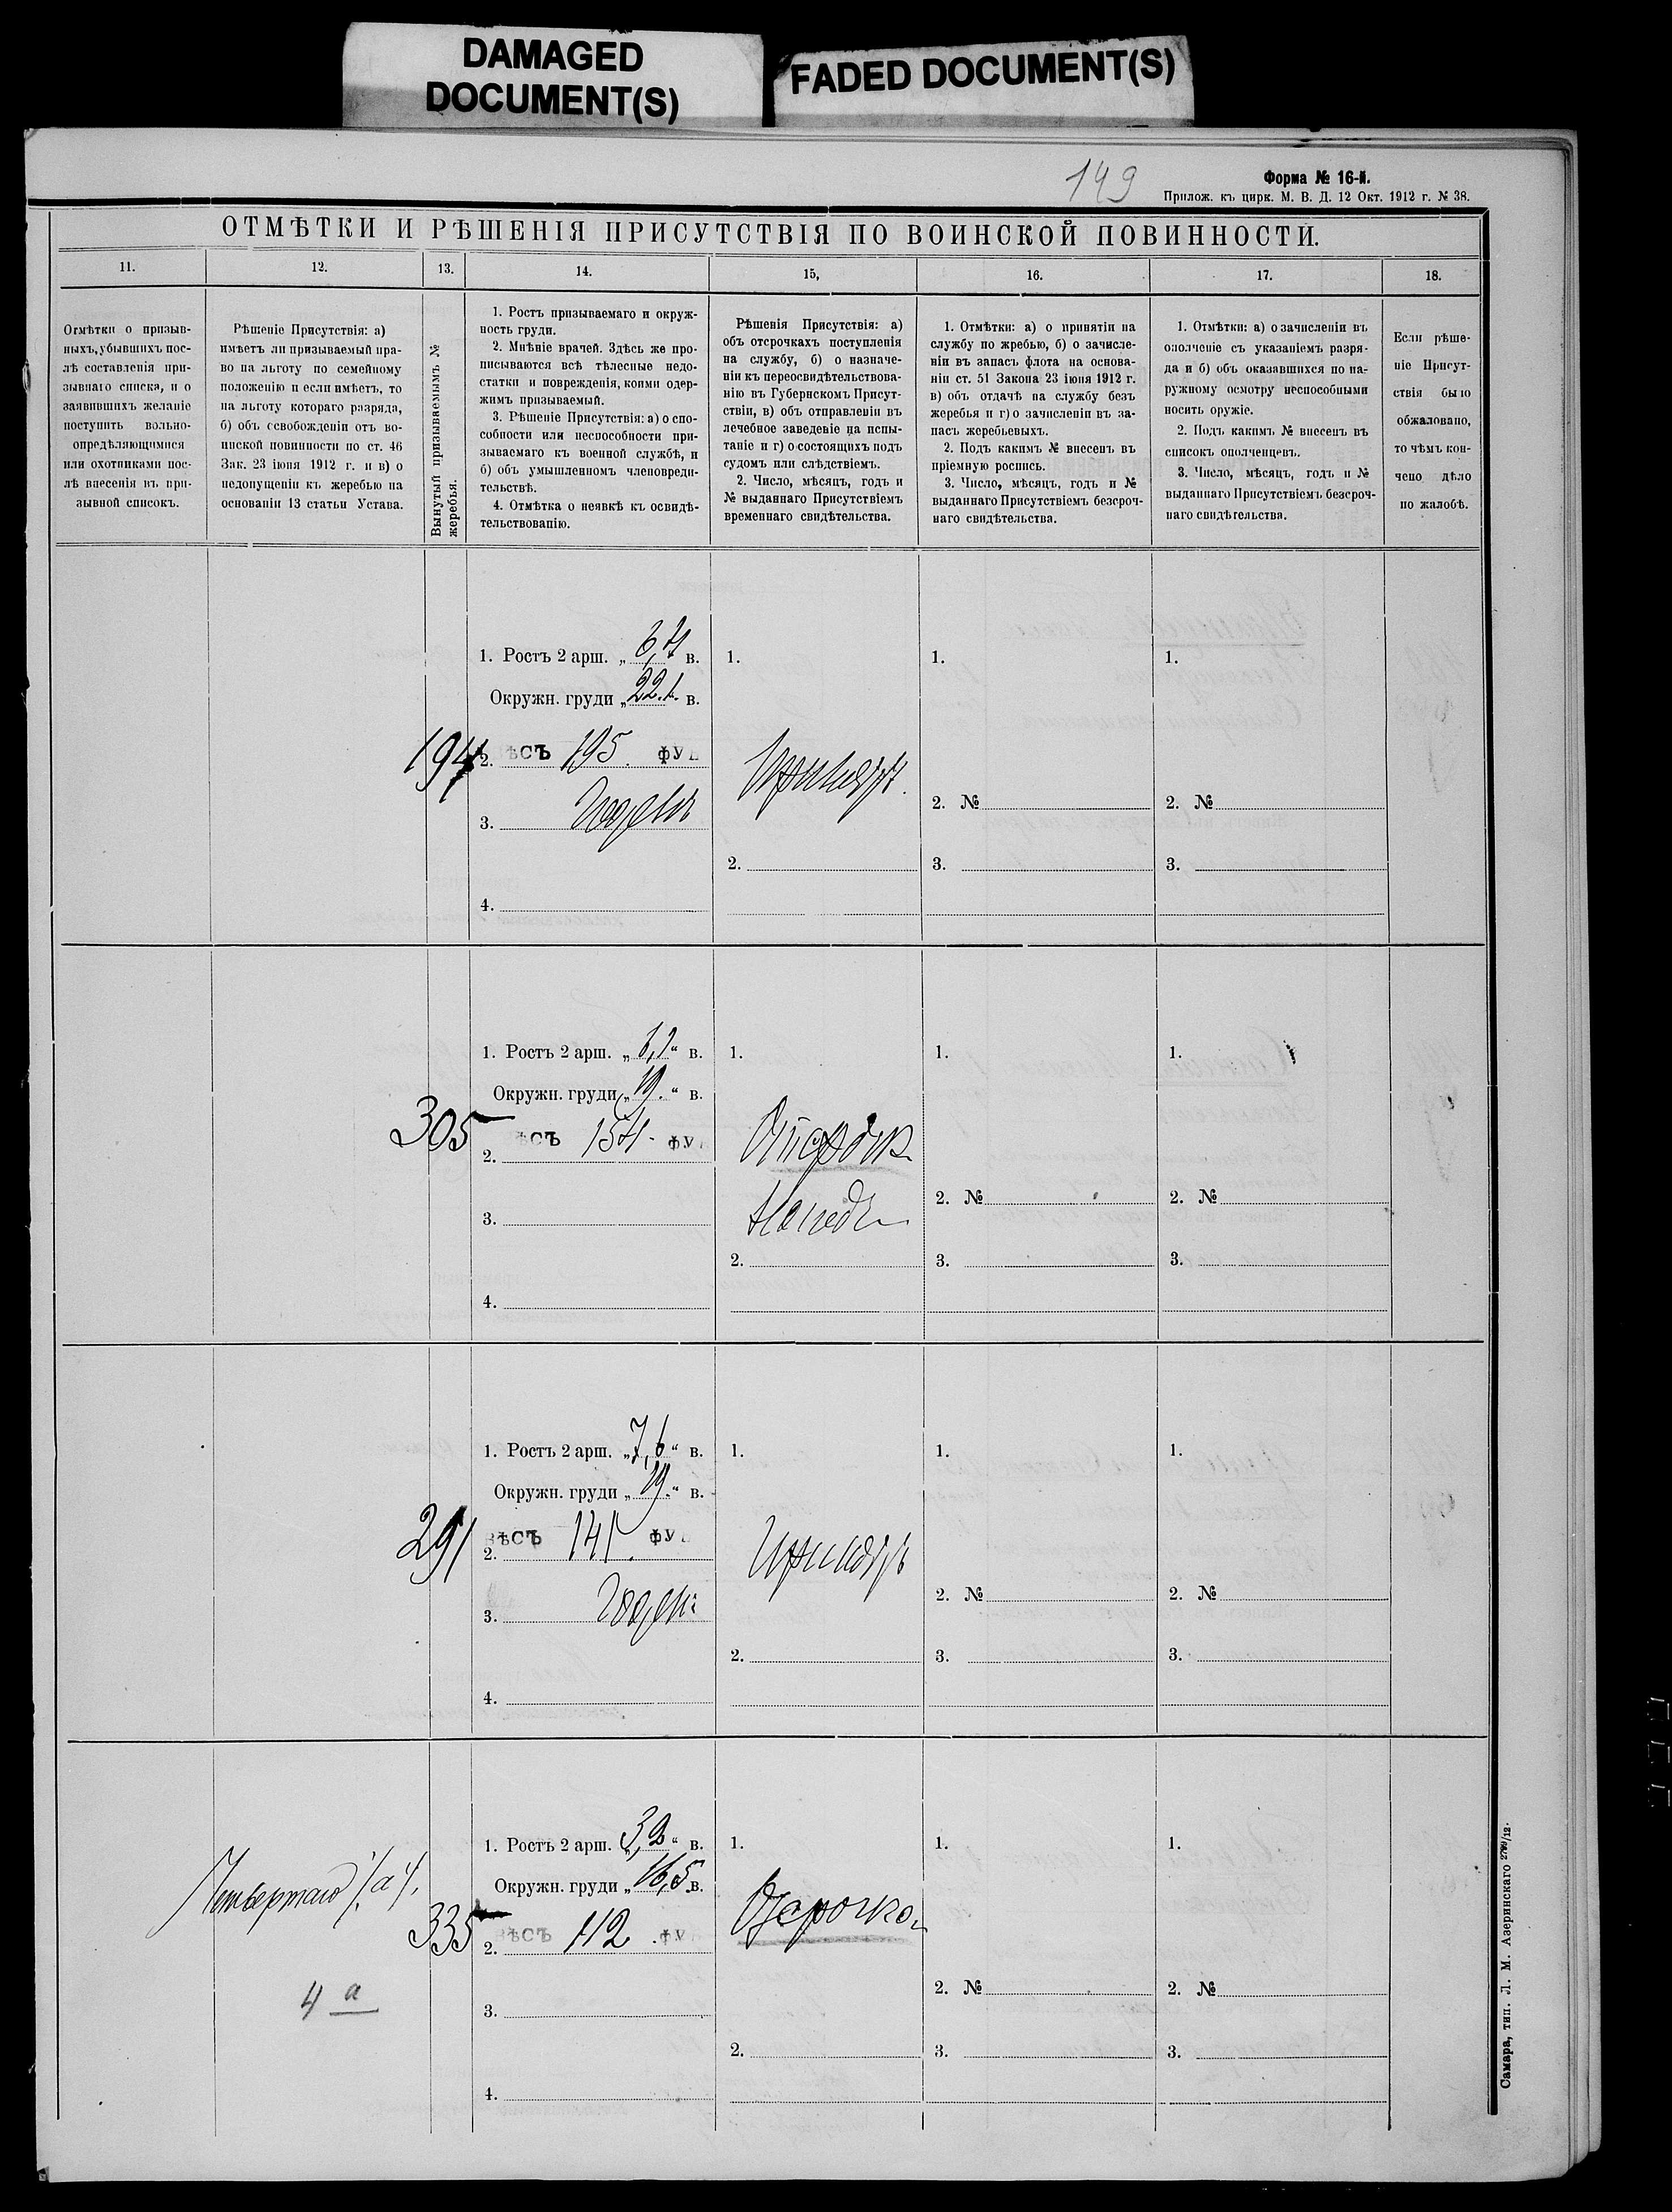 DAMAGED
DOCUMENT(S)
FADED DOCUMENT(S)
149
Форма № 16-й.
Прилож. къ цирк. М. В. Д. 12 Окт. 1912 г. № 38.
ОТМѢТКИ И РѢШЕНІЯ ПРИСУТСТВІЯ ПО ВОИНСКОЙ ПОВИННОСТИ.
11.
12.
13.
14.
15,
16.
17.
18.
Отмѣтки о призыв-
ныхъ, убывшихъ пос-
лѣ составленія при-
зывнаго списка, и о
заявившихъ желаніе
поступить вольно-
опредѣляющимися
или охотниками пос-
лѣ внесенія въ при-
зывной списокъ.
Рѣшеніе Присутствія: а)
имѣетъ ли призываемый пра-
во на льготу по семейному
положенію и если имѣетъ, то
на льготу котораго разряда,
б) объ освобожденіи отъ во-
инской повинности по ст. 46
Зак. 23 іюня 1912 г. и в) о
недопущеніи къ жеребью на
основаніи 13 статьи Устава.
Вынутый призываемымъ №
жеребья.
1. Ростъ призываемаго и окруж-
ность груди.
2. Мнѣніе врачей. Здѣсь же про-
писываются всѣ тѣлесные недо-
статки и поврежденія, коими одер-
жимъ призываемый.
3. Рѣшеніе Присутствія: а) о спо-
собности или неспособности при-
зываемаго къ военной службѣ, и
б) объ умышленномъ членовреди-
тельствѣ.
4. Отмѣтка о неявкѣ къ освидѣ-
тельствованію.
Рѣшенія Присутствія: а)
объ отсрочкахъ поступленія
на службу, б) о назначе-
ніи къ переосвидѣтельствова-
нію въ Губернскомъ Присут-
ствіи, в) объ отправленіи въ
лечебное заведеніе на испы-
таніе и г) о состоящихъ подъ
судомъ или слѣдствіемъ.
2. Число, мѣсяцъ, годъ и
№ выданнаго Присутствіемъ
временнаго свидѣтельства.
1. Отмѣтки: а) о принятіи на
службу по жребью, б) о зачисле-
ніи въ запасъ флота на основа-
ніи ст. 51 Закона 23 іюня 1912 г.
в) объ отдачѣ на службу безъ
жеребья и г) о зачисленіи въ за-
пасъ жеребьевыхъ.
2. Подъ какимъ № внесенъ въ
пріемную роспись.
3. Число, мѣсяцъ, годъ и №
выданнаго Присутствіемъ безсроч-
наго свидѣтельства.
1. Отмѣтки: а) о зачисленіи въ
ополченіе съ указаніемъ разря-
да и б) объ оказавшихся по на-
ружному осмотру неспособными
носить оружіе.
2. Подъ какимъ № внесенъ въ
списокъ ополченцевъ.
3. Число, мѣсяцъ, годъ и №
выданнаго Присутствіемъ безсроч-
наго свидѣтельства.
Если рѣше-
ніе Присут-
ствія было
обжаловано,
то чѣмъ кон-
чено дѣло
по жалобѣ.
1. Ростъ 2 арш. „6,4 в.
Окружн. груди „22.1. в.
194
2. вѣсъ 195. фу
3. Годенъ
4.
1.
Принятъ.
2.
1.
2. №
3.
1.
2. №
3.
1. Ростъ 2 арш. „6,1“ в.
Окружн. груди „19.“ в.
305
2. ѣсъ 154 фу
3.
4.
1.
Отсрочк.
2.
1.
2. №
3.
1.
2. №
3.
1. Ростъ 2 арш. „7,6“ в.
Окружн. груди „19.“ в.
291
2. вѣсъ 141. фу
3. Годенъ
4.
1.
Принятъ
2.
1.
2. №
3.
1.
2. №
3.
Четвертаго /а/.
4 а
1. Ростъ 2 арш. „3,2“ в.
Окружн. груди „16,5 в.
335
2. вѣсъ 112 фу
3.
4.
1.
Отсрочка
2.
1.
2. №
3.
1.
2. №
3.
Самара, тип. Л. М. Азеринскаго 2799/12.